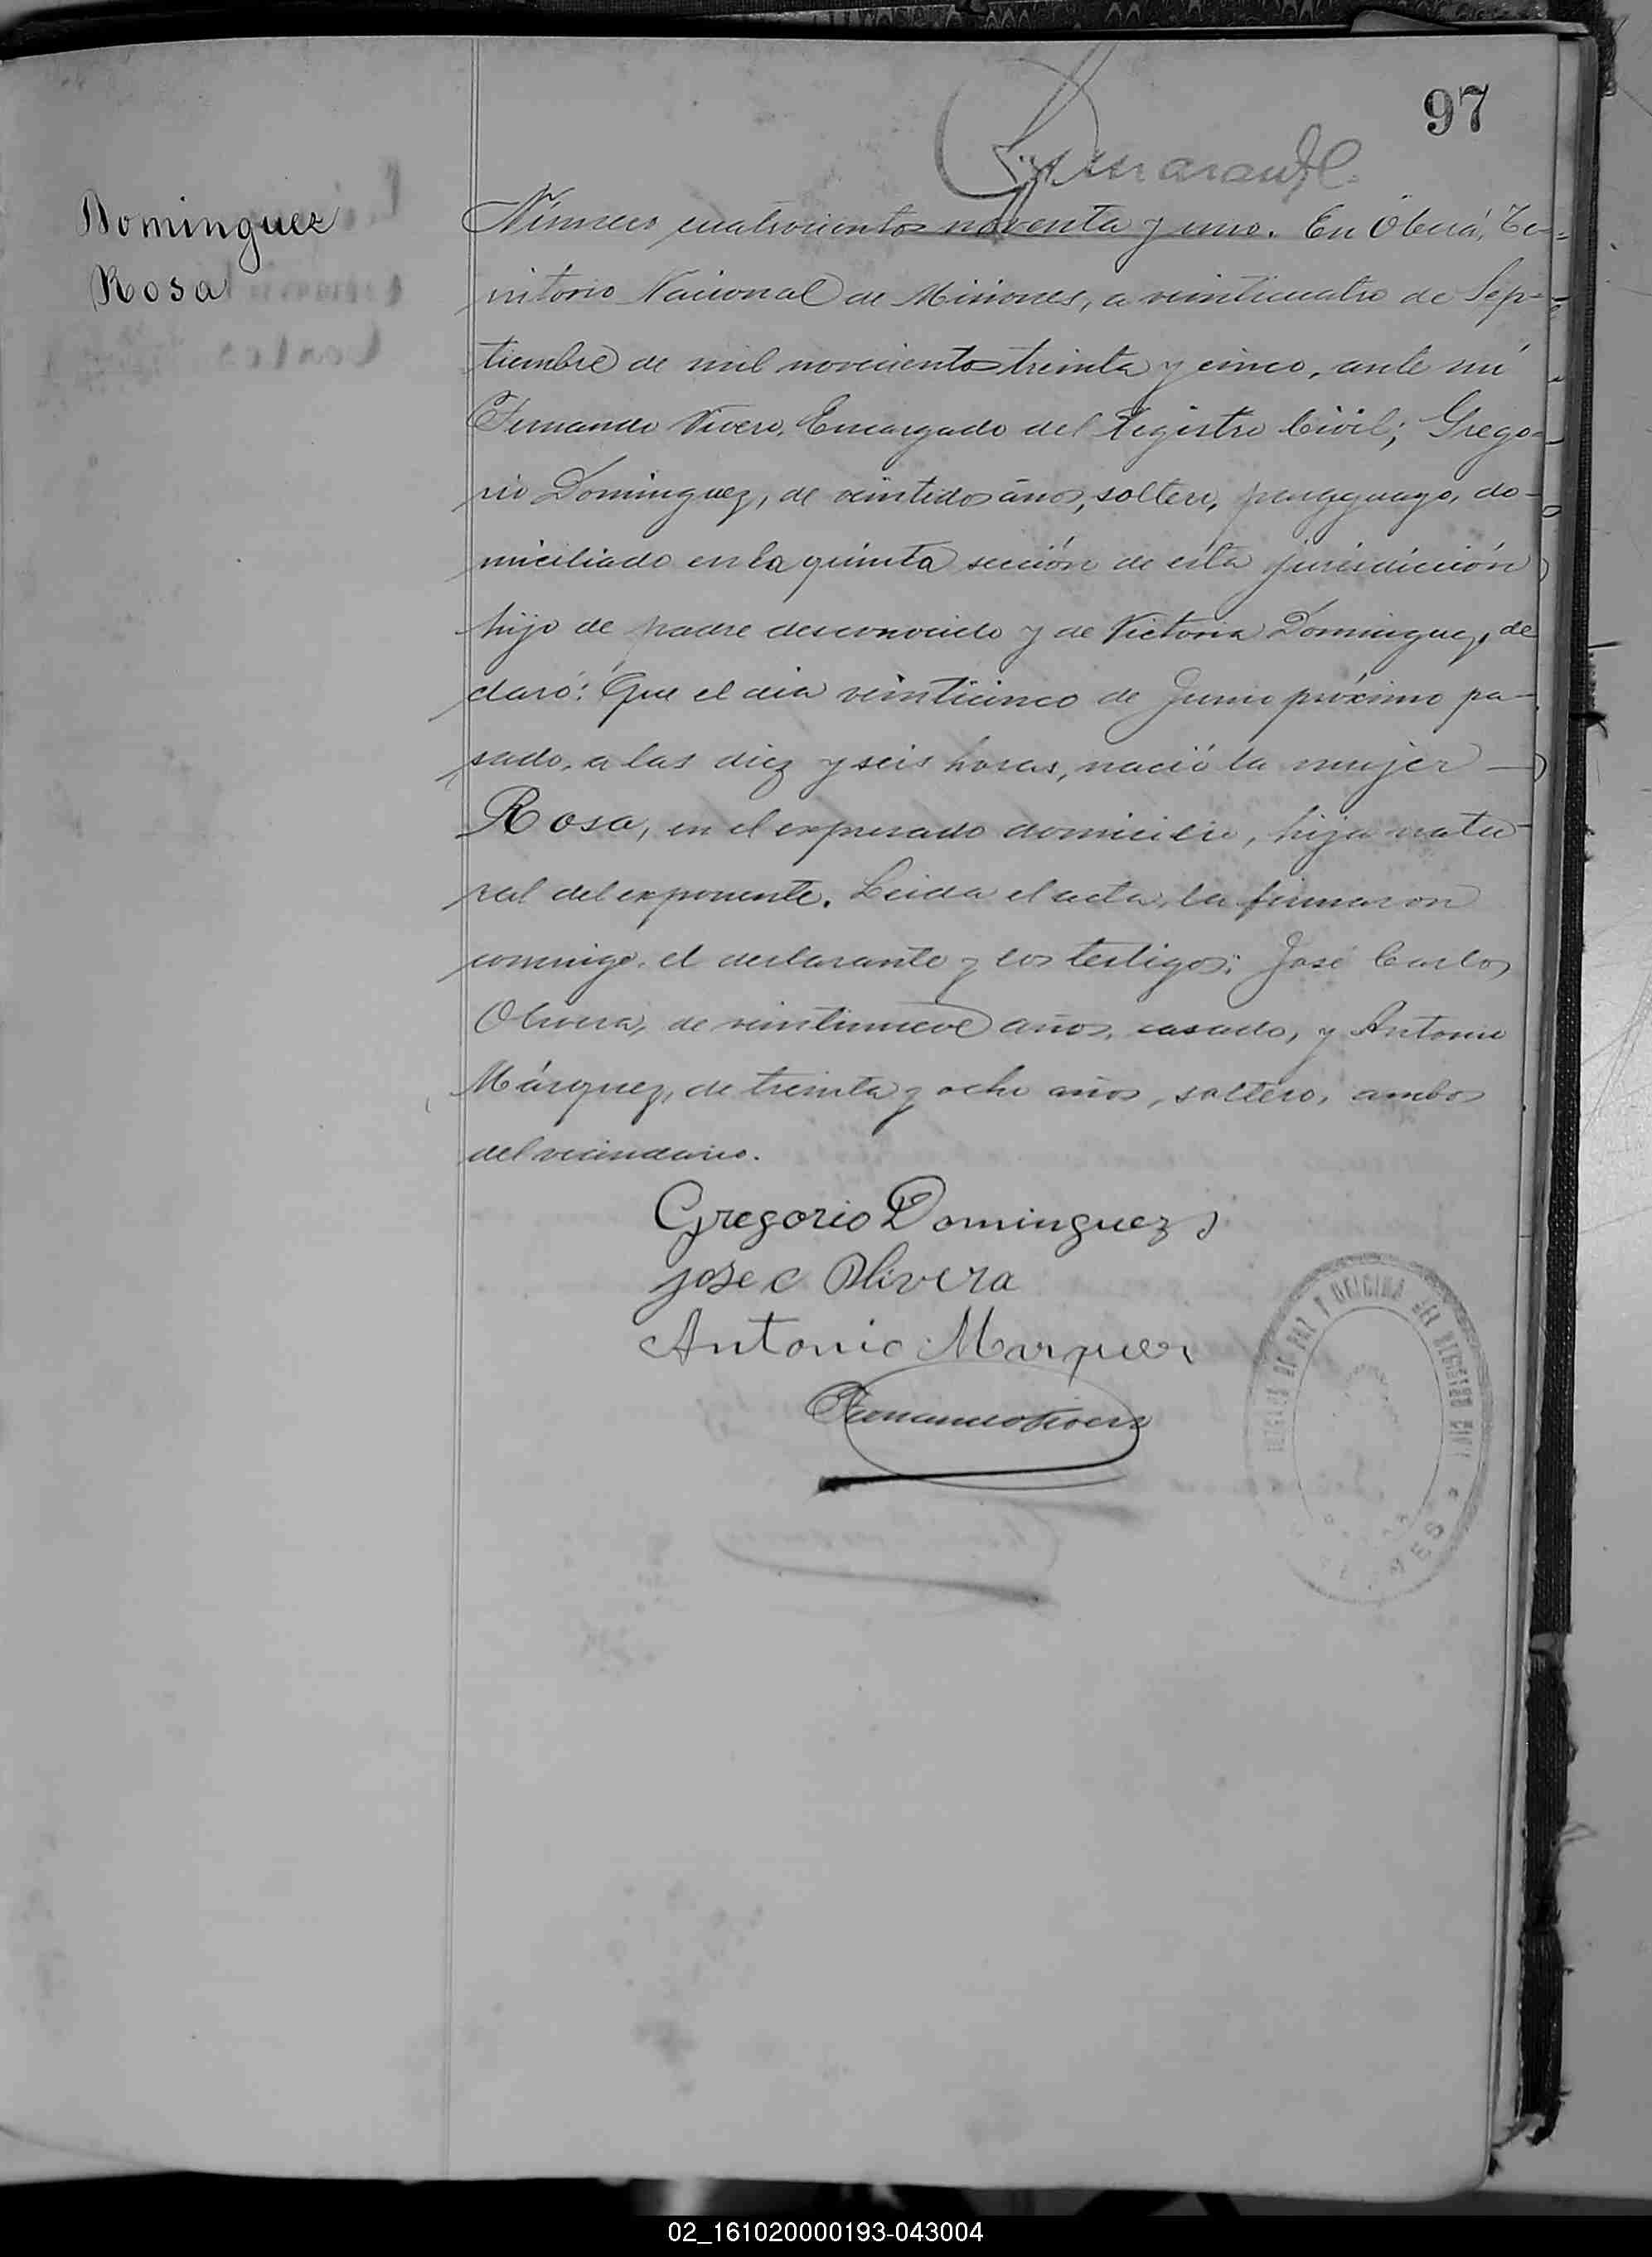 97
Dominguez
Rosa
Número cuatrocientos noventa y uno. En Oberá, Te-
rritorio Nacional de Misiones, a veinticuatro de Sep-
tiembre de mil novecientos treinta y cinco, ante mi
Fernando Vivero, Encargado del Registro Civil; Grego-
rio Dominguez, de veintidos años, soltero, paraguayo, do-
miciliado en la quinta sección de esta jurisdicción
hijo de padre desconocido y de Victoria Dominguez, de
claró: Que el dia veinticinco de Junio próximo pa-
sado, a las diez y seis horas, nació la mujer —
Rosa, en el expresado domicilio, hija natu-
ral del exponente. Leida el acta, la firmaron
conmigo, el declarante y los testigos: José Carlos
Olivera, de veintinueve años, casado, y Antonio
Márquez, de treinta y ocho años, soltero, ambos
del vecindario.
Gregorio Dominguez
Jose C Olivera
Antonio Marquez
Fernando Vivero
JUZGADO DE PAZ Y OFICINA DEL REGISTRO CIVIL
02_161020000193-043004